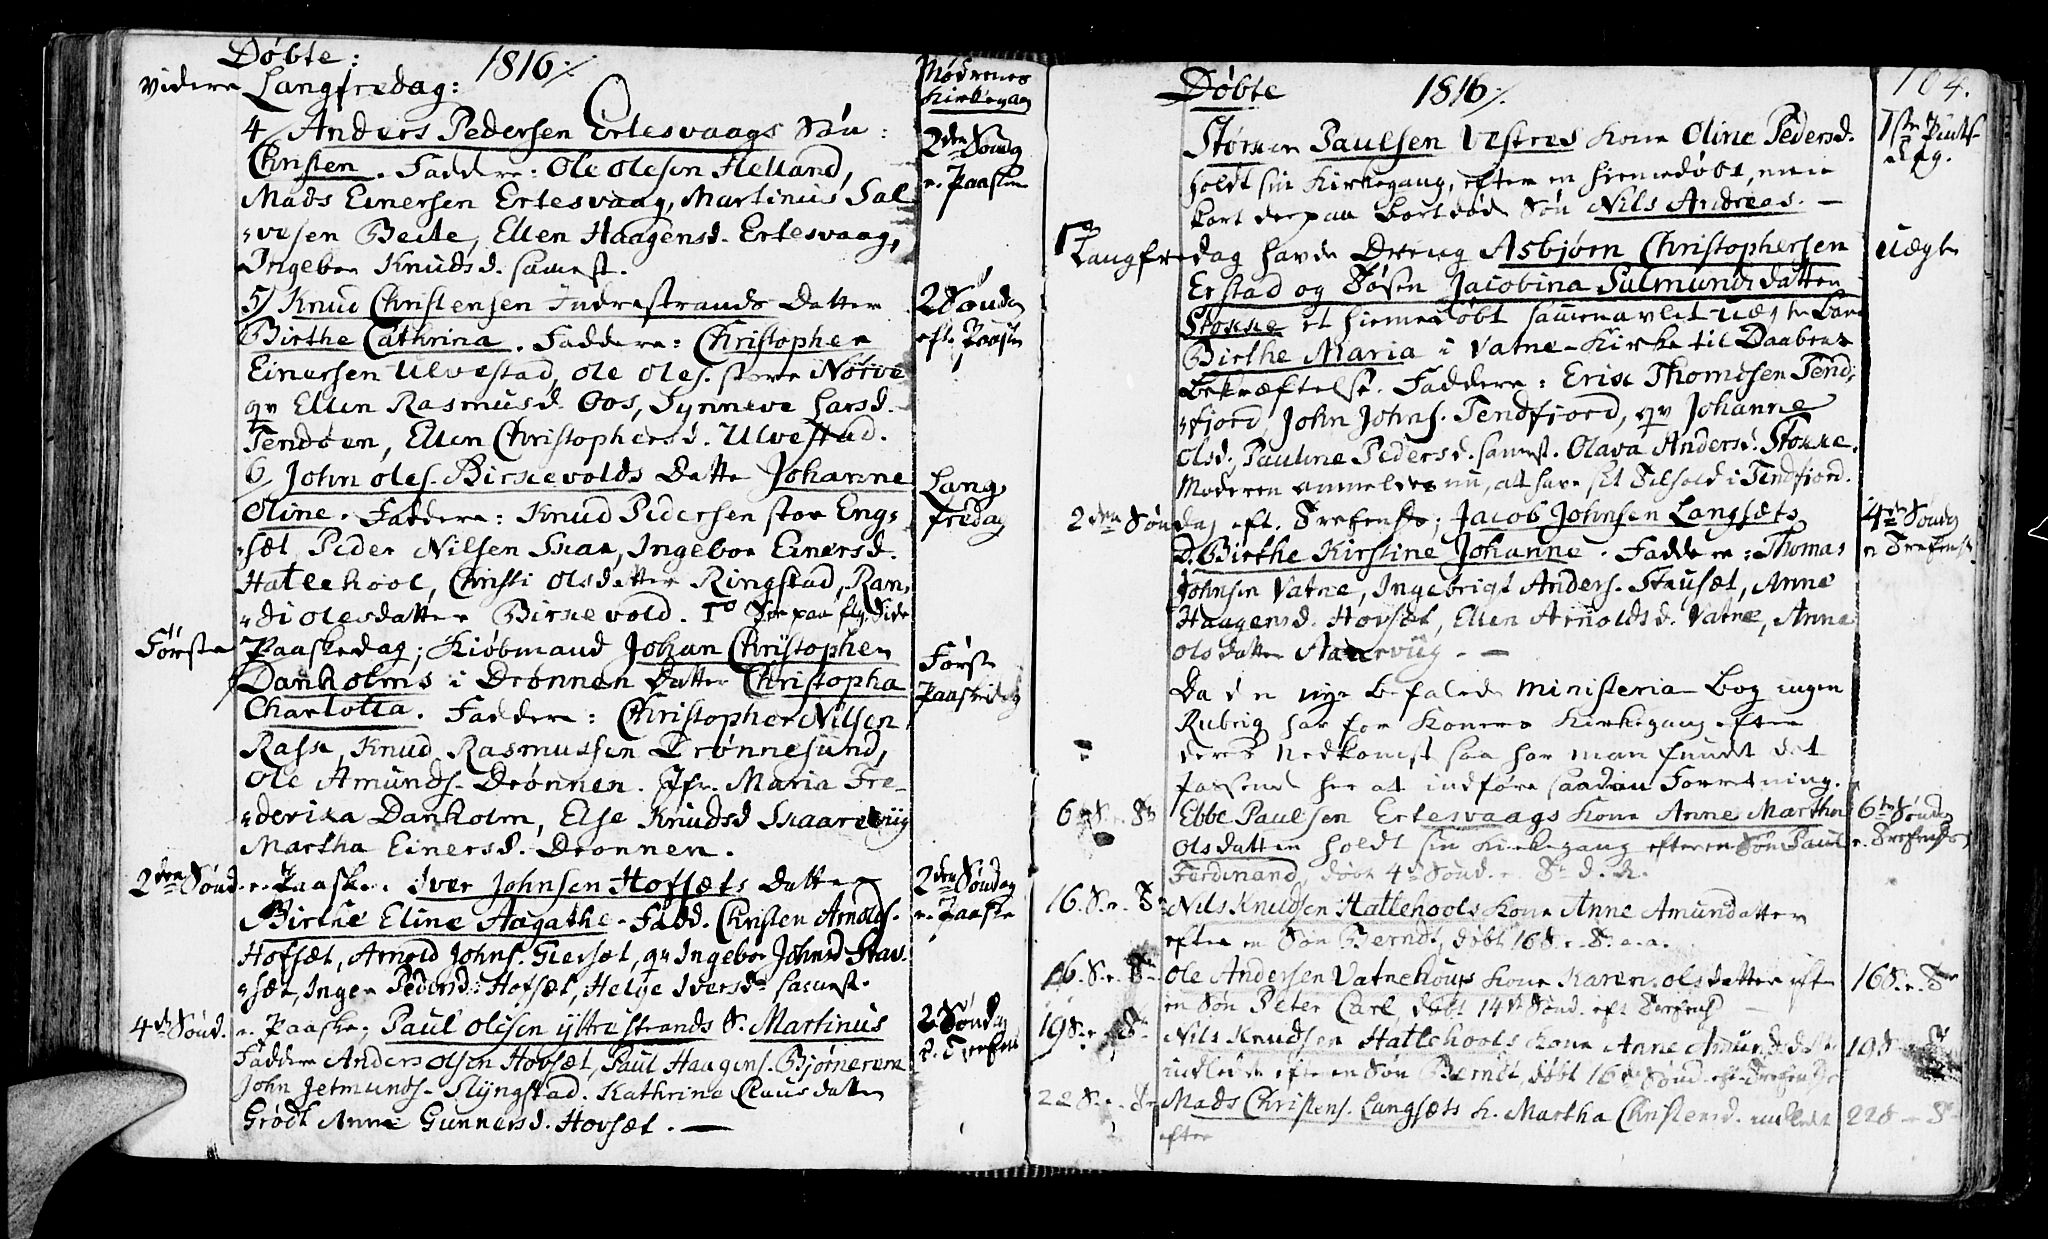 Døbte: 1816 ./.
Mødrenes
Kirkegang
videre Langfredag:
4/ Anders Pedersen Ertesvaags Søn:
Christen. Faddere: Ole Olesen Helland,
Mads Einersen Ertesvaag, Martinus Sal
vesen Beite, Ellen Haagensd. Ertesvaag,
Ingebor Knudsd. samest.
2den Søndg
e. Paasken
5/ Knud Christensen Indrestrands Datter
Birthe Cathrina. Faddere: Christopher
Einersen Ulvestad, Ole Oles. store Nørve
qv Ellen Rasmusd. Oos, Synneve Larsd.
Tendøen, Ellen Christophersd. Ulvestad.
2 Søndag
eft. Paaske
6/ John Oles. Birkevolds Datte Johanne
Oline. Faddere: Knud Pedersen store Eng-
sæt, Peder Nilsen Skar, Ingebor Einersd.
Hatlehool, Christi Olsdatter Ringstad, Ran-
di Olesdatter Birkevold. 1o See paa flg. Side
Lang
fredag
Første Paaskedag; Kiøbmand Johan Christopher
Danholms i Drønnen Datter Christopha
Charlotta. Faddere: Christopher Nilsen
Rasse, Knud Rasmussen Drønnesund,
Ole Amunds. Drønnen. Jfr. Maria Fre-
derika Danholm, Else Knudsd Skaarevüg
Martha Einersd. Drønnen.
Første
Paaskedag
2den Sønd. e. Paaske. Iver Johnsen Hofsæts Datter
Birthe Eline Aagathe. Fadd. Christen Arnolds.
Hofsæt, Arnold Johns. Gjersæt, qv Ingebor Johnsd Stav-
sæt, Inger Pedersd. Hofsæt, Helge Iversd. samest.
2den Søndag
e. Paaske
4de Sønd. e. Paaske. Paul Olsen yttrestrands S. Martinus
Faddere Anders Olsen Hovsæt, Paul Haagens. Bjørnerem
John Jetmunds. Slyngstad. Kathrine Clausdatter
Grødt Anne Gunnersd. Hovsæt.
2 Søndag
e. Trefen
Døbte 1816 ./. 104.
Størker Paulsen Vestres Kone Oline Pedersd.
holdt sin Kirkegang, efter en hiemedøbt, men
kort derpaa bortdød Søn Nils Andreas.
1ste Pintse
dag.
1o Langfredag havde Dreng Asbjørn Christophersen
Erstad og Tøsen Jacobina Salmundsdatter
Stokke et hiemedøbt sammenavlet uægte Barn
Birthe Maria i Vatne-Kirke til Daabens
bekræftelse. Faddere: Erik Thomesen Tend-
fjord, John Johns. Tendfjord, qv Johanne
Olsd, Pauline Pedersd. samest. Olava Andersd. Stokke.
Moderen anmeldes nu, at have sit Tilhold i Tendfjord.
uægte
2den Søndag eft. Trefends; Jacob Johnsen Langsæts
D. Birthe Kirstine Johanne. Faddere: Thomas
Johnsen Vatne, Ingebrigt Anders. Stausæt, Anne
Haagensd. Hovsæt, Ellen Arnoldsd. Vatne, Anne
Olsdatter Aakervüg.
4de Søndg
e. Trefends.
Da den nye befalede Ministerial Bog ingen
Rubrig har for Koners Kirkegang efter
deres Nedkomst saa har man fundet det
passende her at indføre saadan Forretning.
6 S. e. Tr. Ebbe Paulsen Ertesvaags Kone Anne Marthe
Olsdatter holdt sin Kirkegang efter en Søn Paul
Ferdinand, døbt 4de Sønd. e Tr. d. A.
6te Søndg
e. Trefends
16. S. e. Tr Nils Knudsen Hatlehools Kone Anne Amundatter
efter en Søn Bernd, døbt 16 S. e. Tr. a. a.
16. S. e. Tr. Ole Andersen Vatnehouvs Kone Karen Olsdatter eft
en Søn Peter Carl døbt 14de Sønd. eft Trefends
16 S. e. Tr
19 S. e. Tr. Nils Knudsen Hatlehools Kone Anne Amundsdatter
indledte efter en Søn Berndt, døbt 16de Sønd. eft. Trefends
19 S. e. Tr
22 S. e. Tr. Mads Christens. Langsæts K. Martha Christensd. indledt
efter
22 S. e. Tr